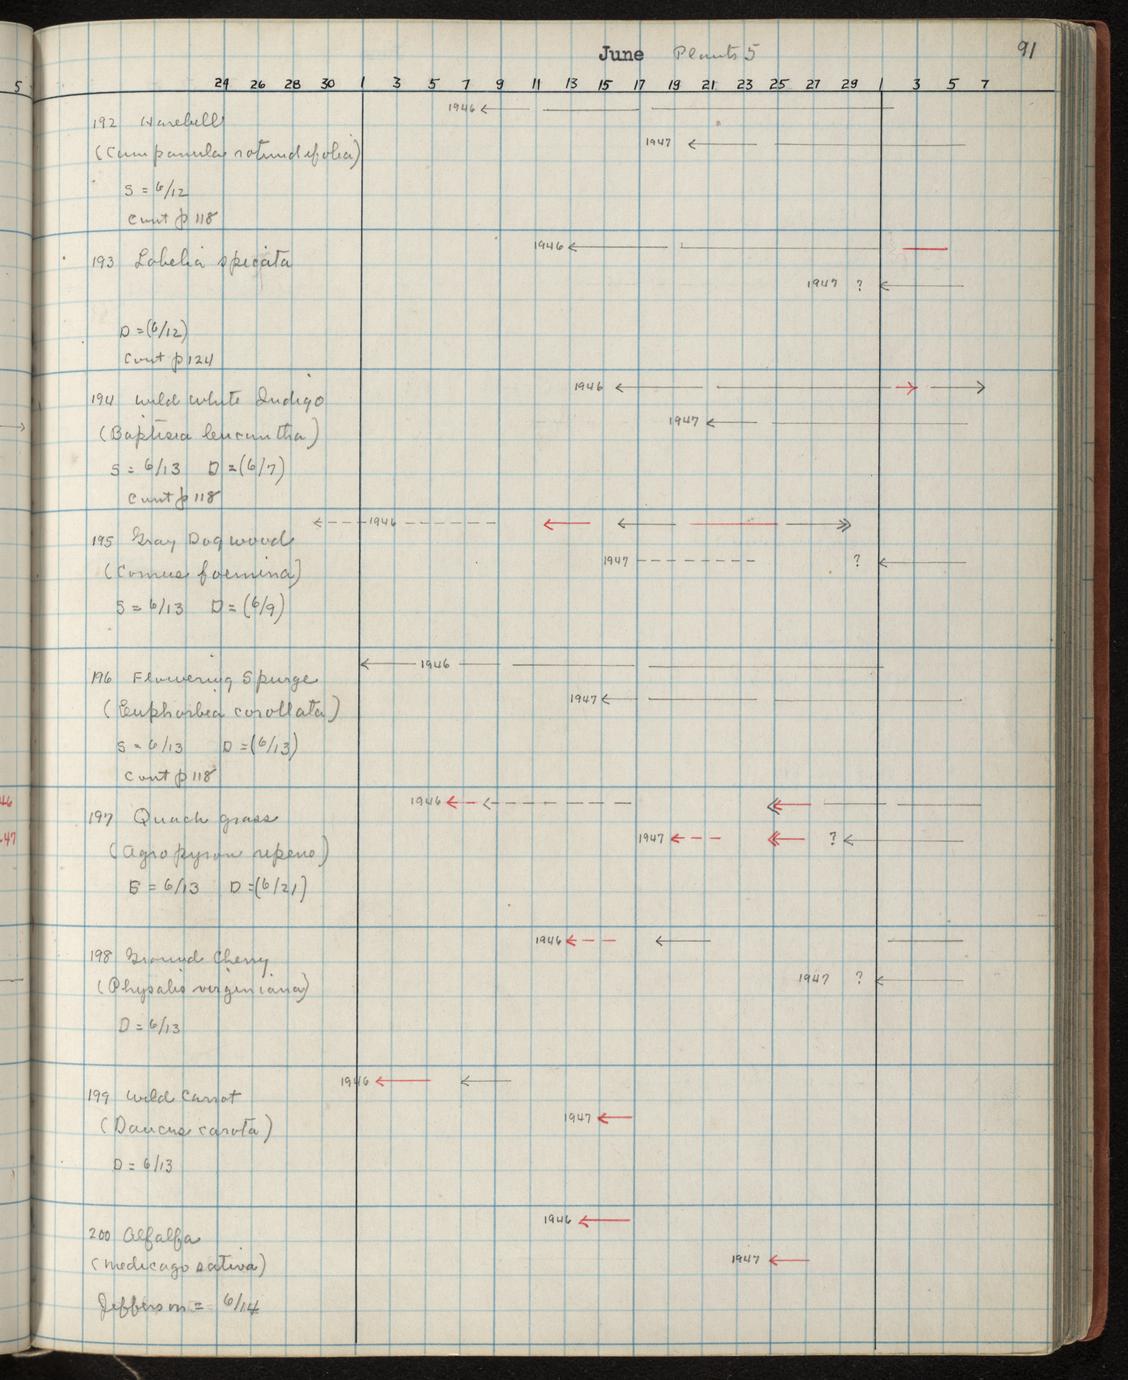 June Plants 5
91
5
24 26 28 30 1 3 5 7 9 11 13 15 17 19 21 23 25 27 29 1 3 5 7
1946
192 Harebell
(Campanula rotundifolia)
1947
S = 6/12
Cont p 118
1946
193 Lobelia spicata
1947 ?
D = (6/12)
Cont p 124
1946
194 Wild White Indigo
1947
(Baptisia leucantha)
S = 6/13 D = (6/7)
Cont p 118
1946
195 Gray Dogwood
1947 ?
(Cornus foemina)
S = 6/13 D = (6/9)
1946
196 Flowering Spurge
1947
(Euphorbia corollata)
S = 6/13 D = (6/13)
Cont p 118
46
1946
197 Quack grass
47
1947 ?
(Agropyron repens)
S = 6/13 D = (6/21)
1946
198 Ground Cherry
1947 ?
(Physalis virginiana)
D = 6/13
1946
199 Wild Carrot
1947
(Daucus carota)
D = 6/13
1946
200 Alfalfa
1947
(Medicago sativa)
Jefferson = 6/14